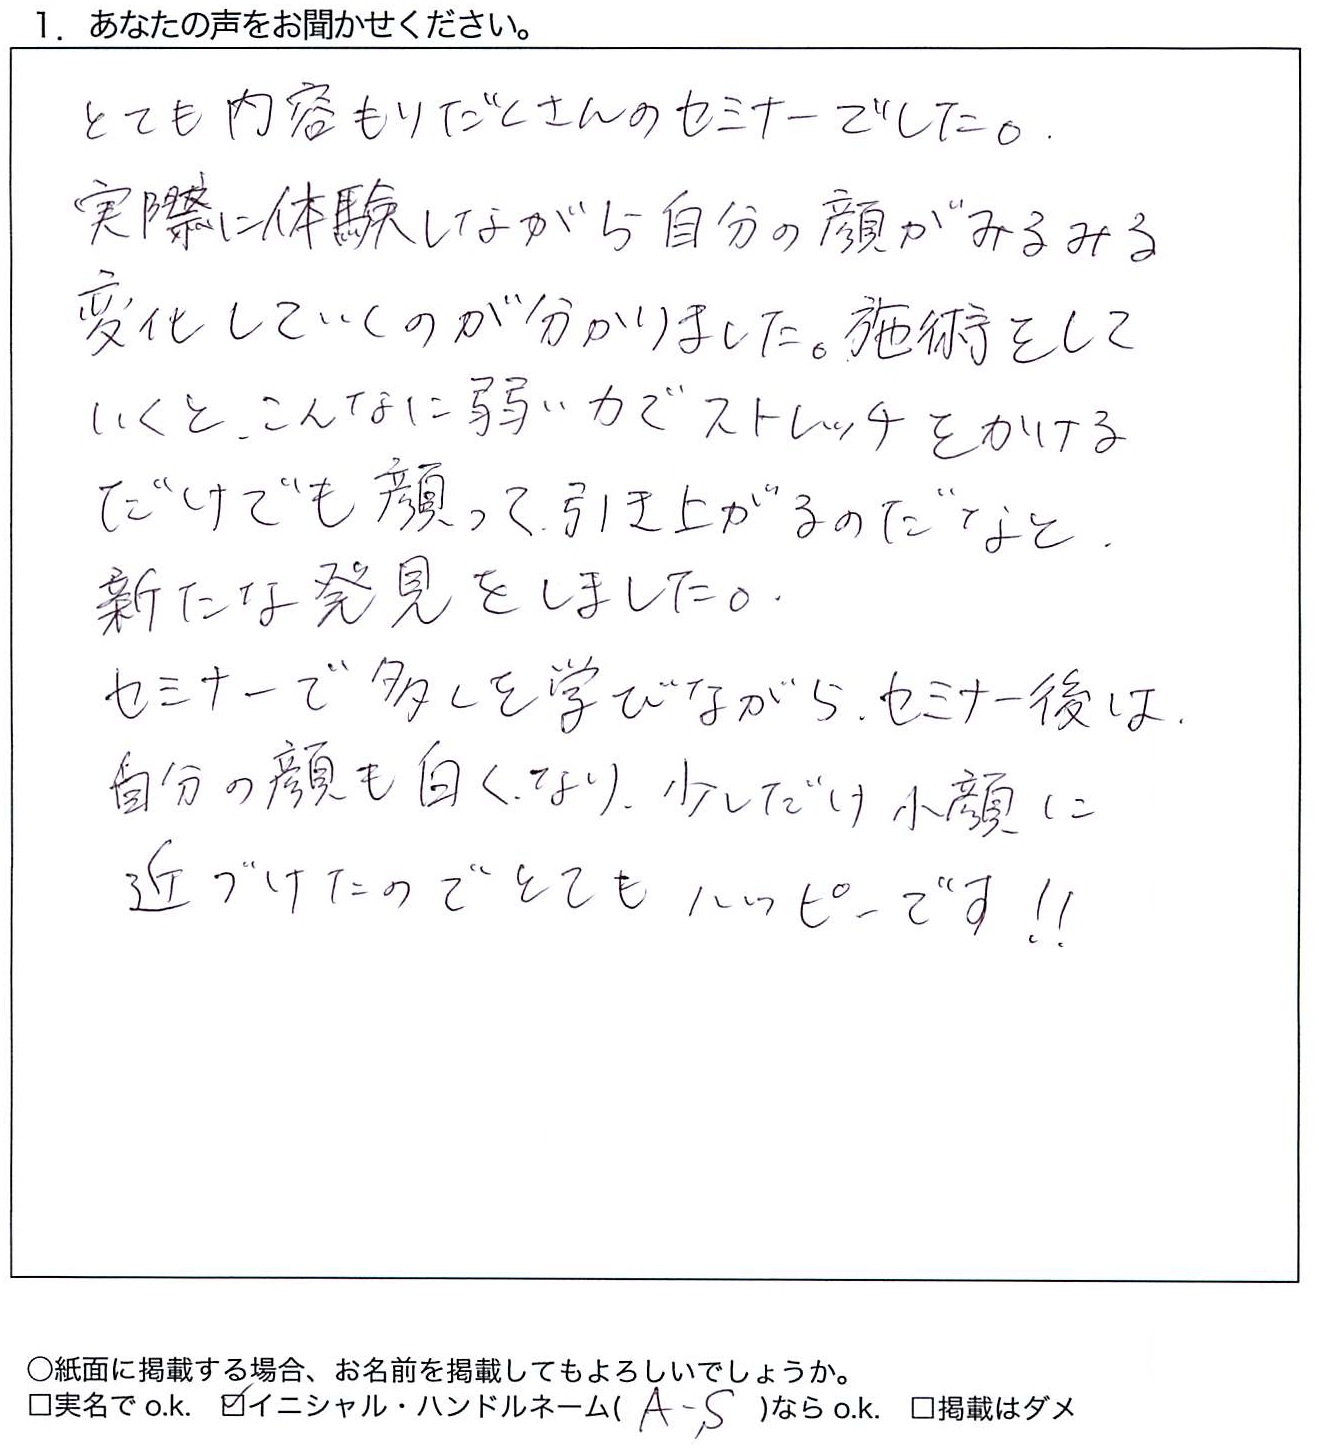 1. あなたの声をお聞かせください。
とても内容もりだくさんのセミナーでした。
実際に体験しながら自分の顔がみるみる
変化していくのが分かりました。施術をして
いくと、こんなに弱い力でストレッチをかける
だけでも顔って、引き上がるのだなと、
新たな発見をしました。
セミナーで多くを学びながら、セミナー後は、
自分の顔も白くなり、少しだけ小顔に
近づけたのでとてもハッピーです!!
○紙面に掲載する場合、お名前を掲載してもよろしいでしょうか。
□実名でo.k. ☑イニシャル・ハンドルネーム( A-S )ならo.k. □掲載はダメ